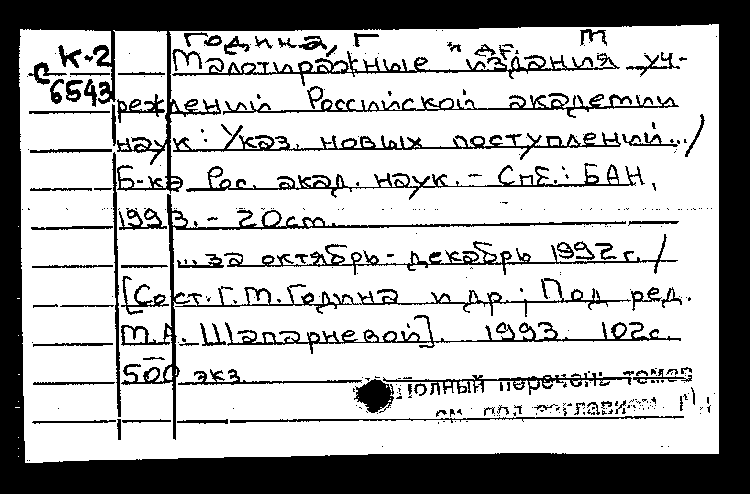 Година, Г М
К-2
с
6543
Малотиражные издания уч-
реждений Российской академии
наук: Указ. новых поступлений.../
Б-ка Рос. акад. наук. - Спб.: БАН,
1993. - 20см.
...за октябрь-декабрь 1992г./
[Сост. Г.М.Година и др.; Под ред.
М.А. Шапарневой]. 1993. 102с.
500 экз.
Полный перечень томов
см. под заглавием